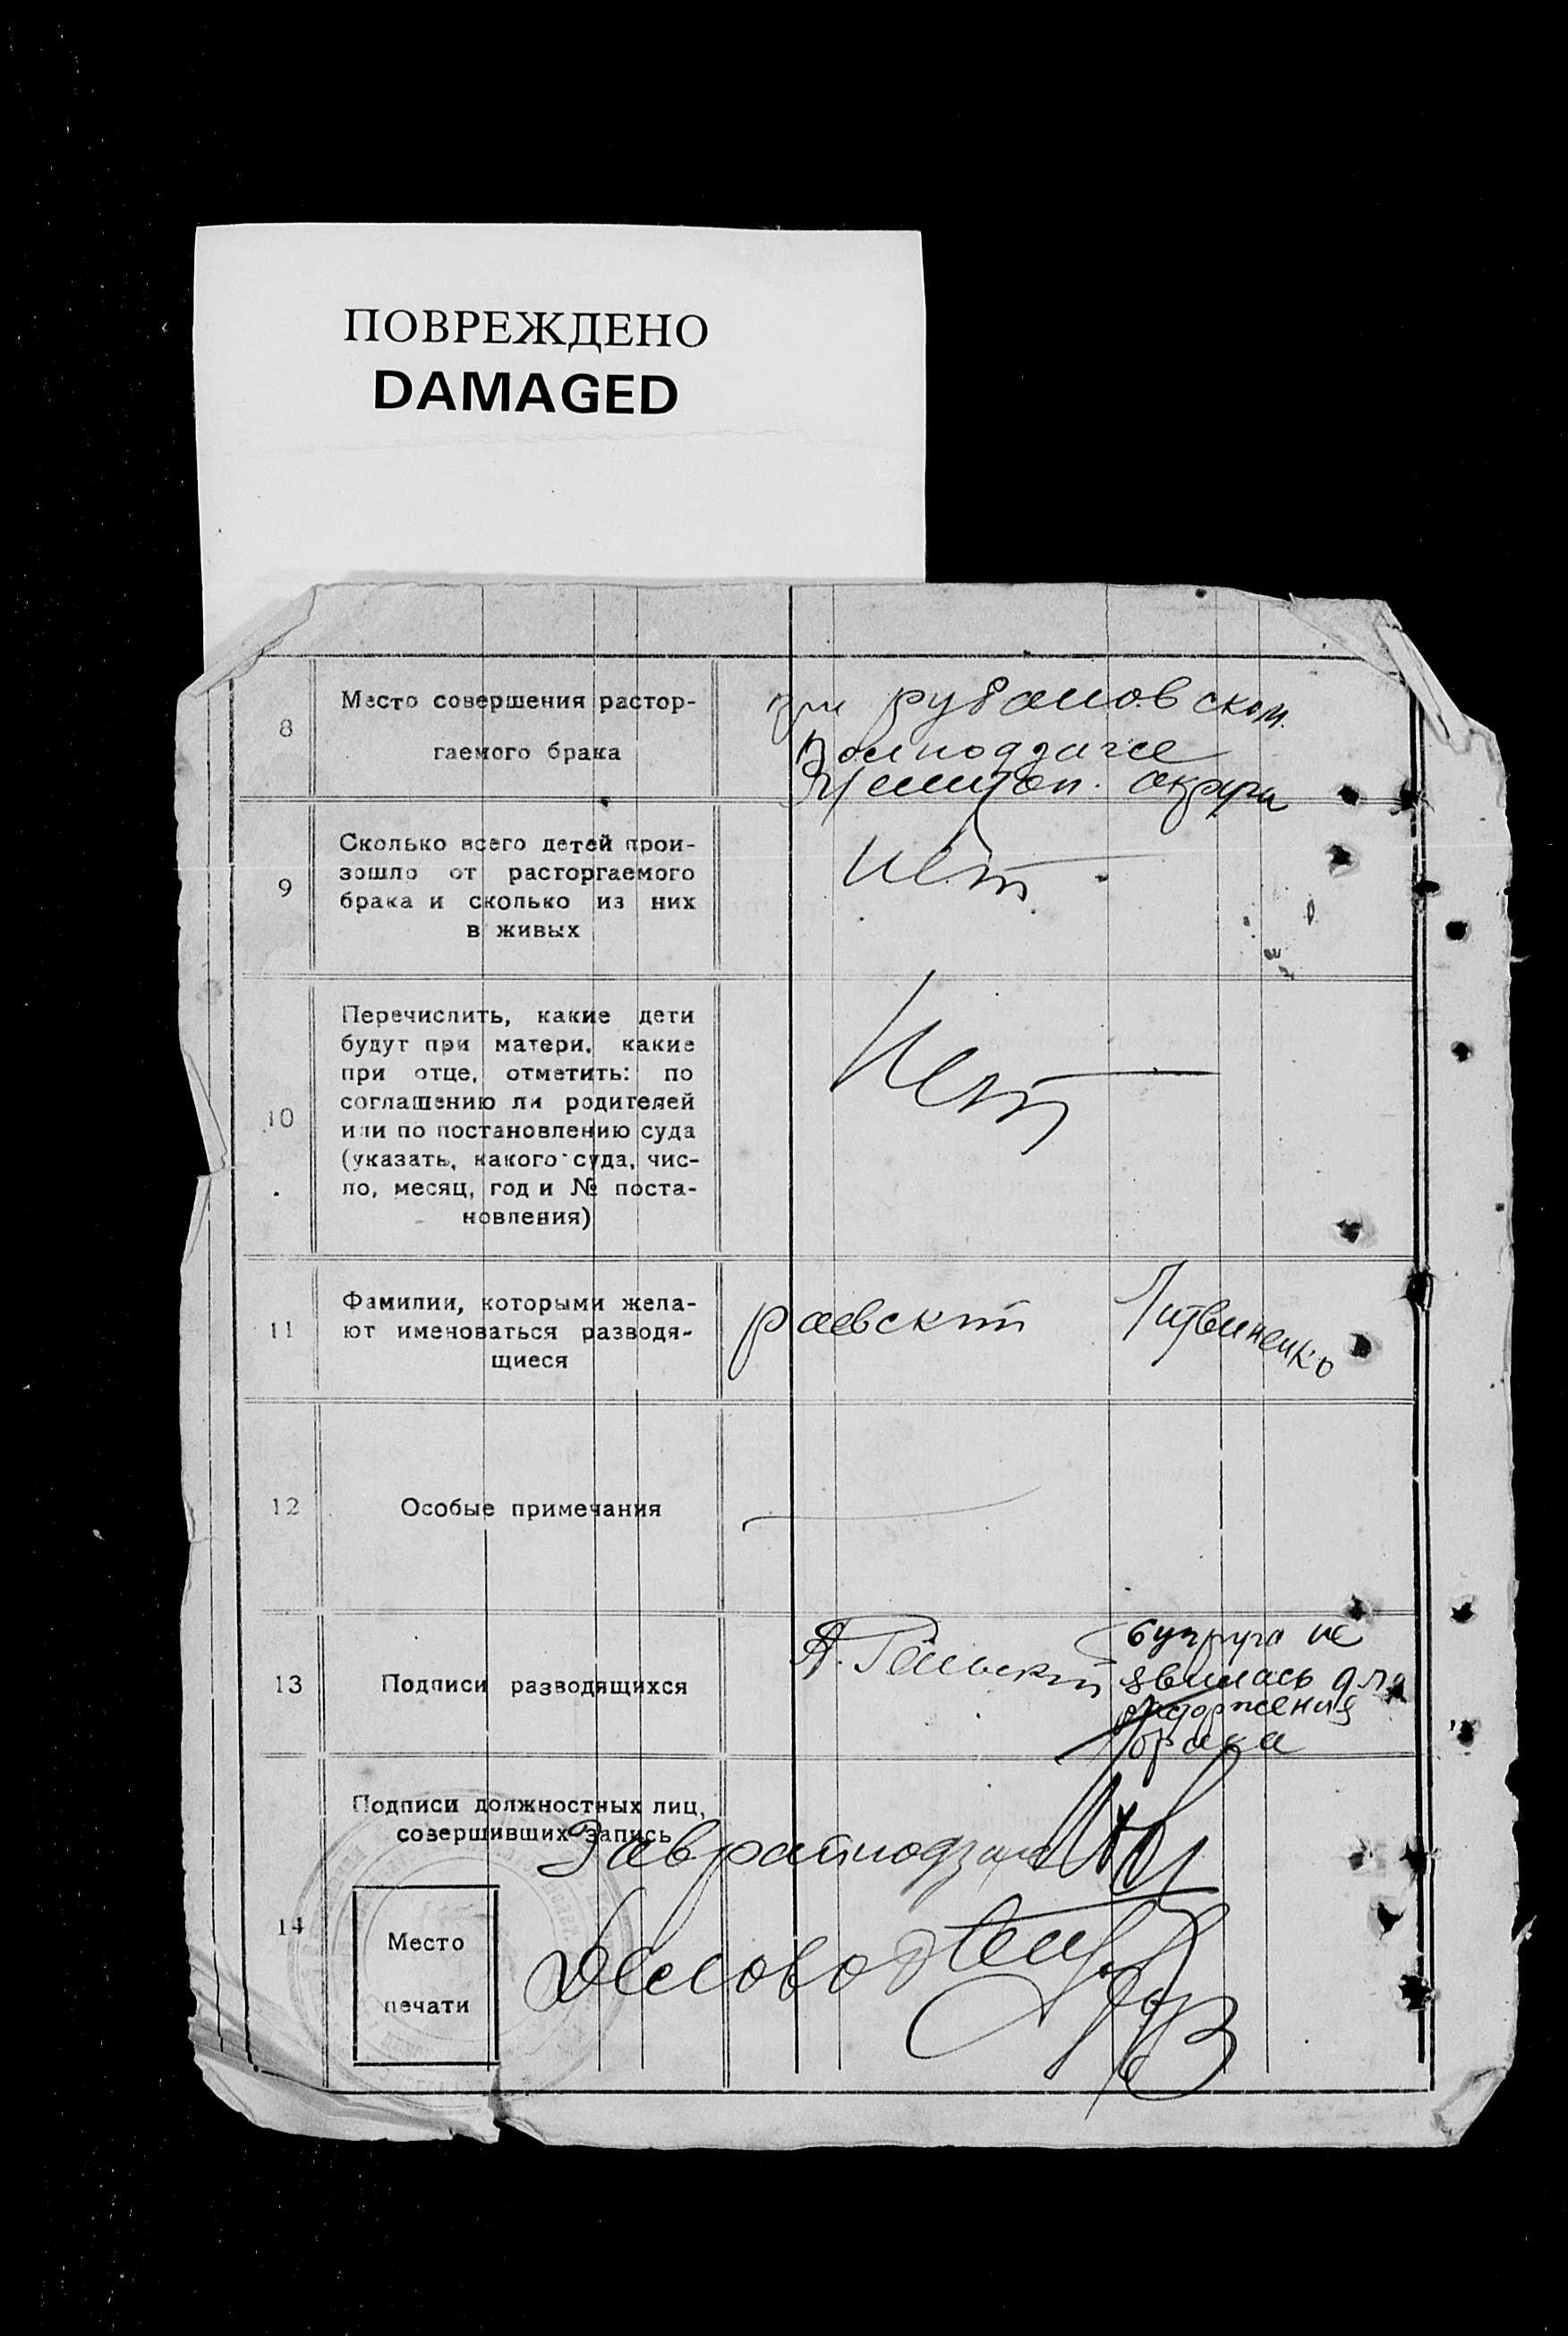 ПОВРЕЖДЕНО
DAMAGED
8
Место совершения растор-
гаемого брака
при рубановском
Волподзаге
Мелитоп. округа
9
Сколько всего детей прои-
зошло от расторгаемого
брака и сколько из них
в живых
Нет
10
Перечислить, какие дети
будут при матери, какие
при отце, отметить: по
соглашению ли родителей
или по постановлению суда
(указать, какого суда, чис-
ло, месяц, год и № поста-
новления)
Нет
11
Фамилии, которыми жела-
ют именоваться разводя-
щиеся
раевский Литвиненко
12
Особые примечания
13
Подписи разводящихся
супруга не
явилась для
расторжения
брака
14
Подписи должностных лиц,
совершивших запись
Зав райподзаг
Место
печати
Деловод